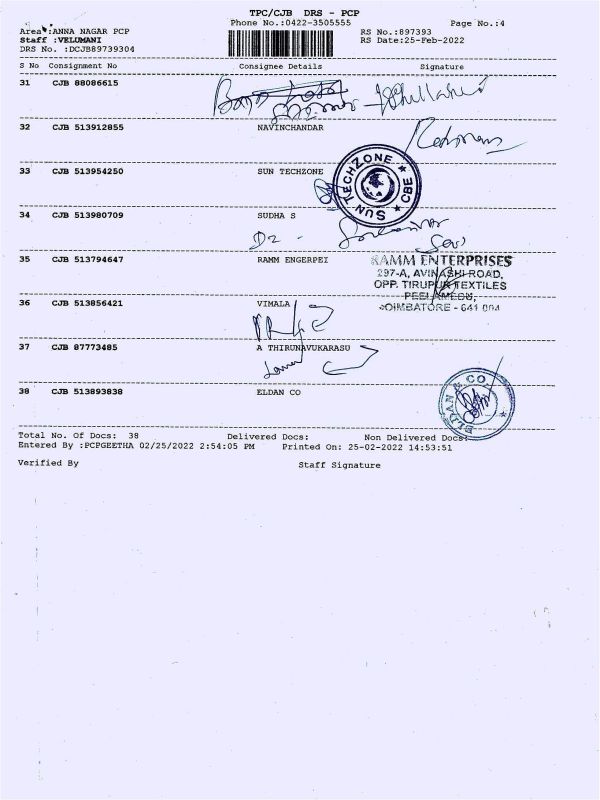 TPC/CJB DRS - PCP
Phone No.:0422-3505555 Page No.:4
Area :ANNA NAGAR PCP RS No.:897393
Staff :VELUMANI RS Date:25-Feb-2022
DRS No. :DCJB89739304
S No Consignment No Consignee Details Signature
31 CJB 88086615
32 CJB 513912855 NAVINCHANDAR
33 CJB 513954250 SUN TECHZONE
SUN TECHZONE ★ CBE ★
34 CJB 513980709 SUDHA S
35 CJB 513794647 RAMM ENGERPEI
RAMM ENTERPRISES
297-A, AVINASHI ROAD,
OPP. TIRUPUR TEXTILES
PEELAMEDU,
COIMBATORE - 641 004
36 CJB 513856421 VIMALA
37 CJB 87773485 A THIRUNAVUKARASU
38 CJB 513893838 ELDAN CO
& CO
Total No. Of Docs: 38 Delivered Docs: Non Delivered Docs:
Entered By :PCPGEETHA 02/25/2022 2:54:05 PM Printed On: 25-02-2022 14:53:51
Verified By Staff Signature